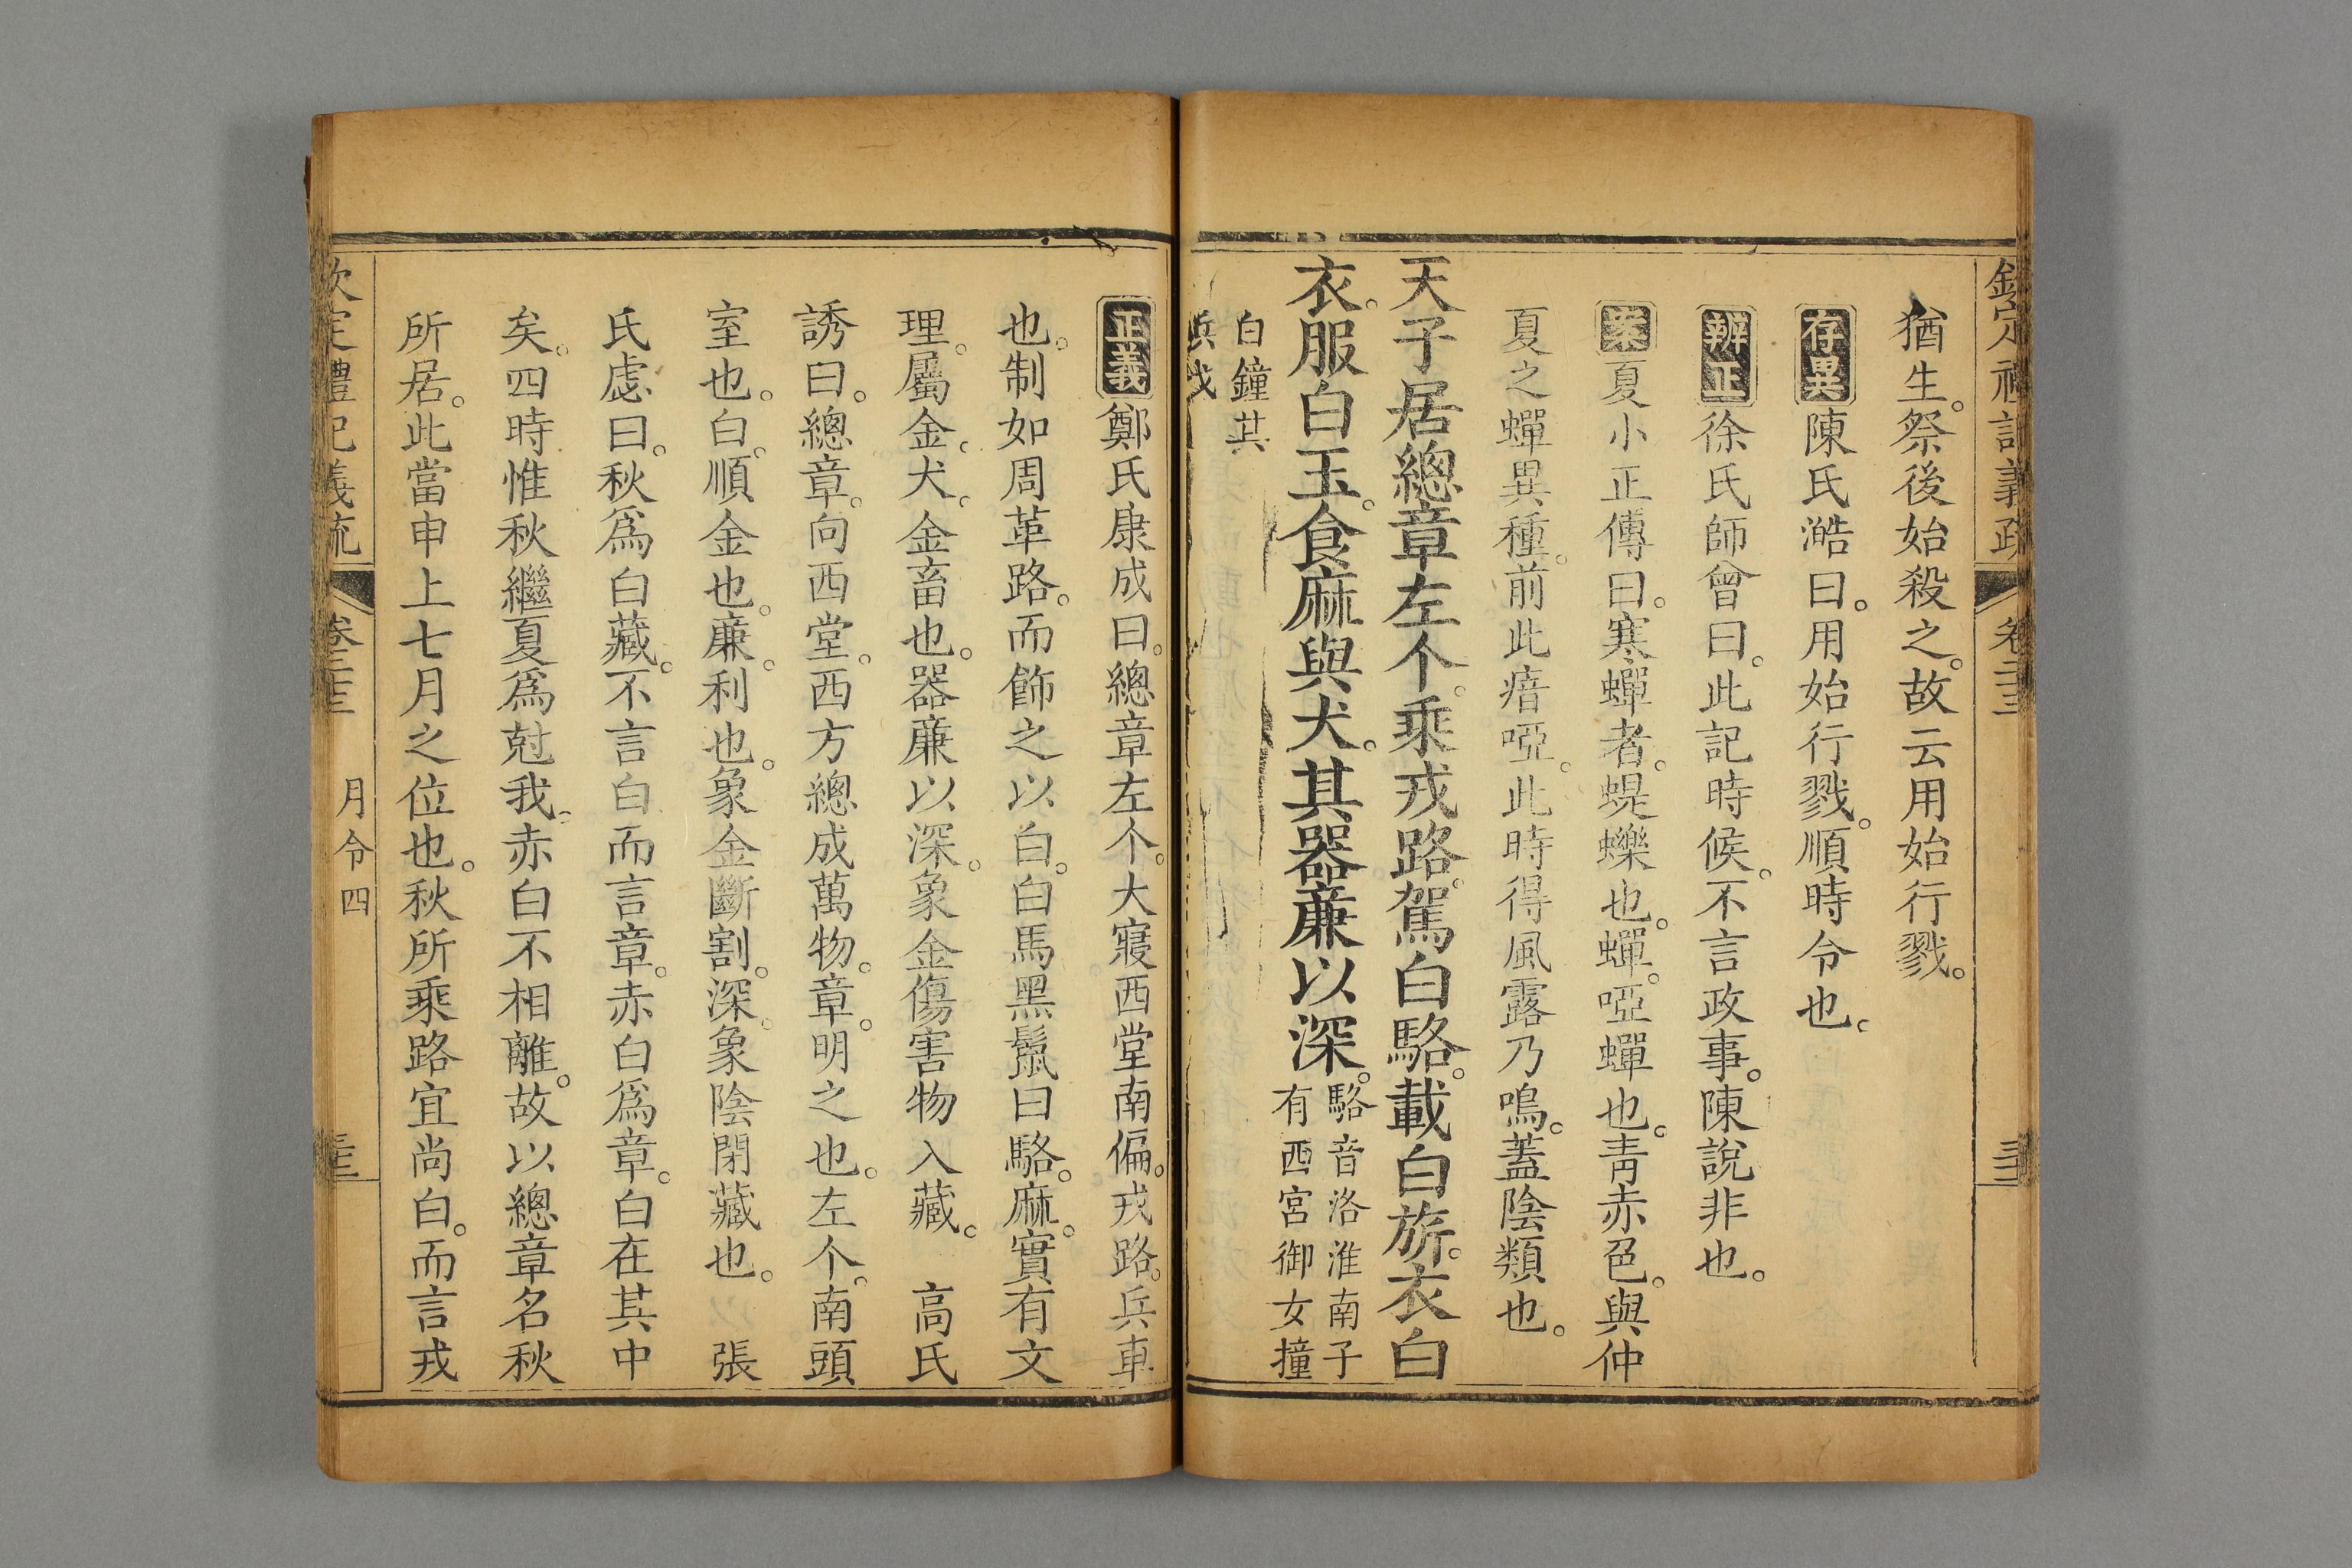 欽定禮記義疏 卷二十三
猶生。祭後始殺之。故云用始行戮。
存異 陳氏澔曰。用始行戮。順時令也。
辨正 徐氏師曾曰。此記時候。不言政事。陳說非也。
案 夏小正傳曰。寒蟬者。蝭蠑也。蟬。啞蟬也。靑赤色。與仲
夏之蟬異種。前此瘖啞。此時得風露乃鳴。蓋陰類也。
天子居總章左个。乘戎路。駕白駱。載白旂。衣白
衣。服白玉。食麻與犬。其器廉以深。
駱音洛淮南子
有西宮御女撞
白鐘其
兵戈
正義 鄭氏康成曰。總章左个。大寢西堂南偏。戎路。兵車
也。制如周革路。而飾之以白。白馬黑鬣曰駱。麻。實有文
理。屬金。犬。金畜也。器廉以深。象金傷害物入藏。 高氏
誘曰。總章。向西堂。西方總成萬物。章。明之也。左个。南頭
室也。白。順金也。廉。利也。象金斷割。深。象陰閉藏也。 張
氏虙曰。秋爲白藏。不言白而言章。赤白爲章。白在其中
矣。四時惟秋繼夏爲尅我。赤白不相離。故以總章名秋
所居。此當申上七月之位也。秋所乘路宜尚白。而言戎
欽定禮記義疏 卷二十三 月令四